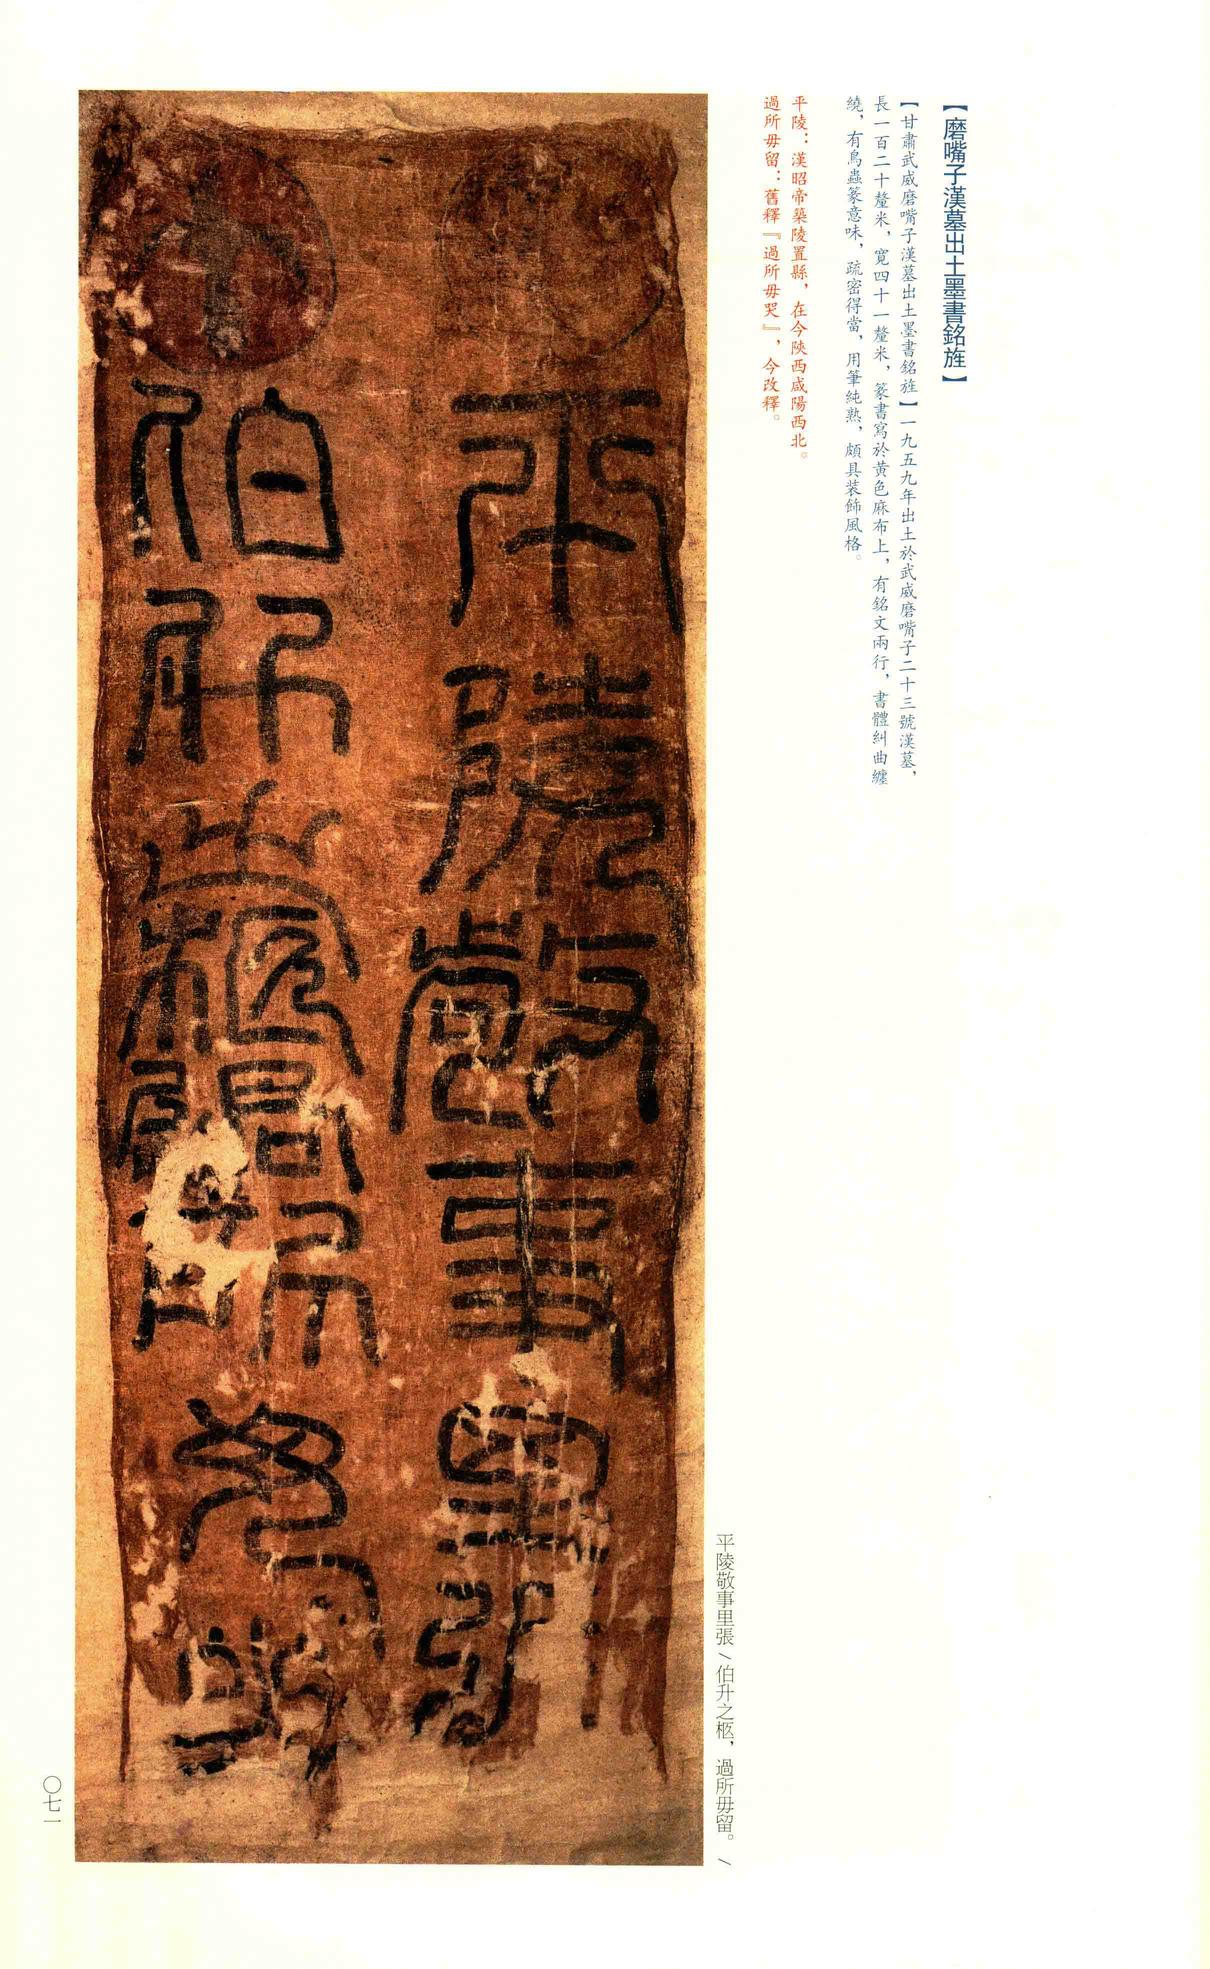 【磨嘴子漢墓出土墨書銘旌】
【甘肅武威磨嘴子漢墓出土墨書銘旌】一九五九年出土於武威磨嘴子二十三號漢墓，
長一百二十釐米，寬四十一釐米，篆書寫於黃色麻布上，有銘文兩行，書體糾曲纏
繞，有鳥蟲篆意味，疏密得當，用筆純熟，頗具裝飾風格。
平陵：漢昭帝築陵置縣，在今陝西咸陽西北。
過所毋留：舊釋『過所毋哭』，今改釋。
平陵敬事里張／伯升之柩，過所毋留。／
平陵敬事里張
伯升之柩過所毋留
〇七一